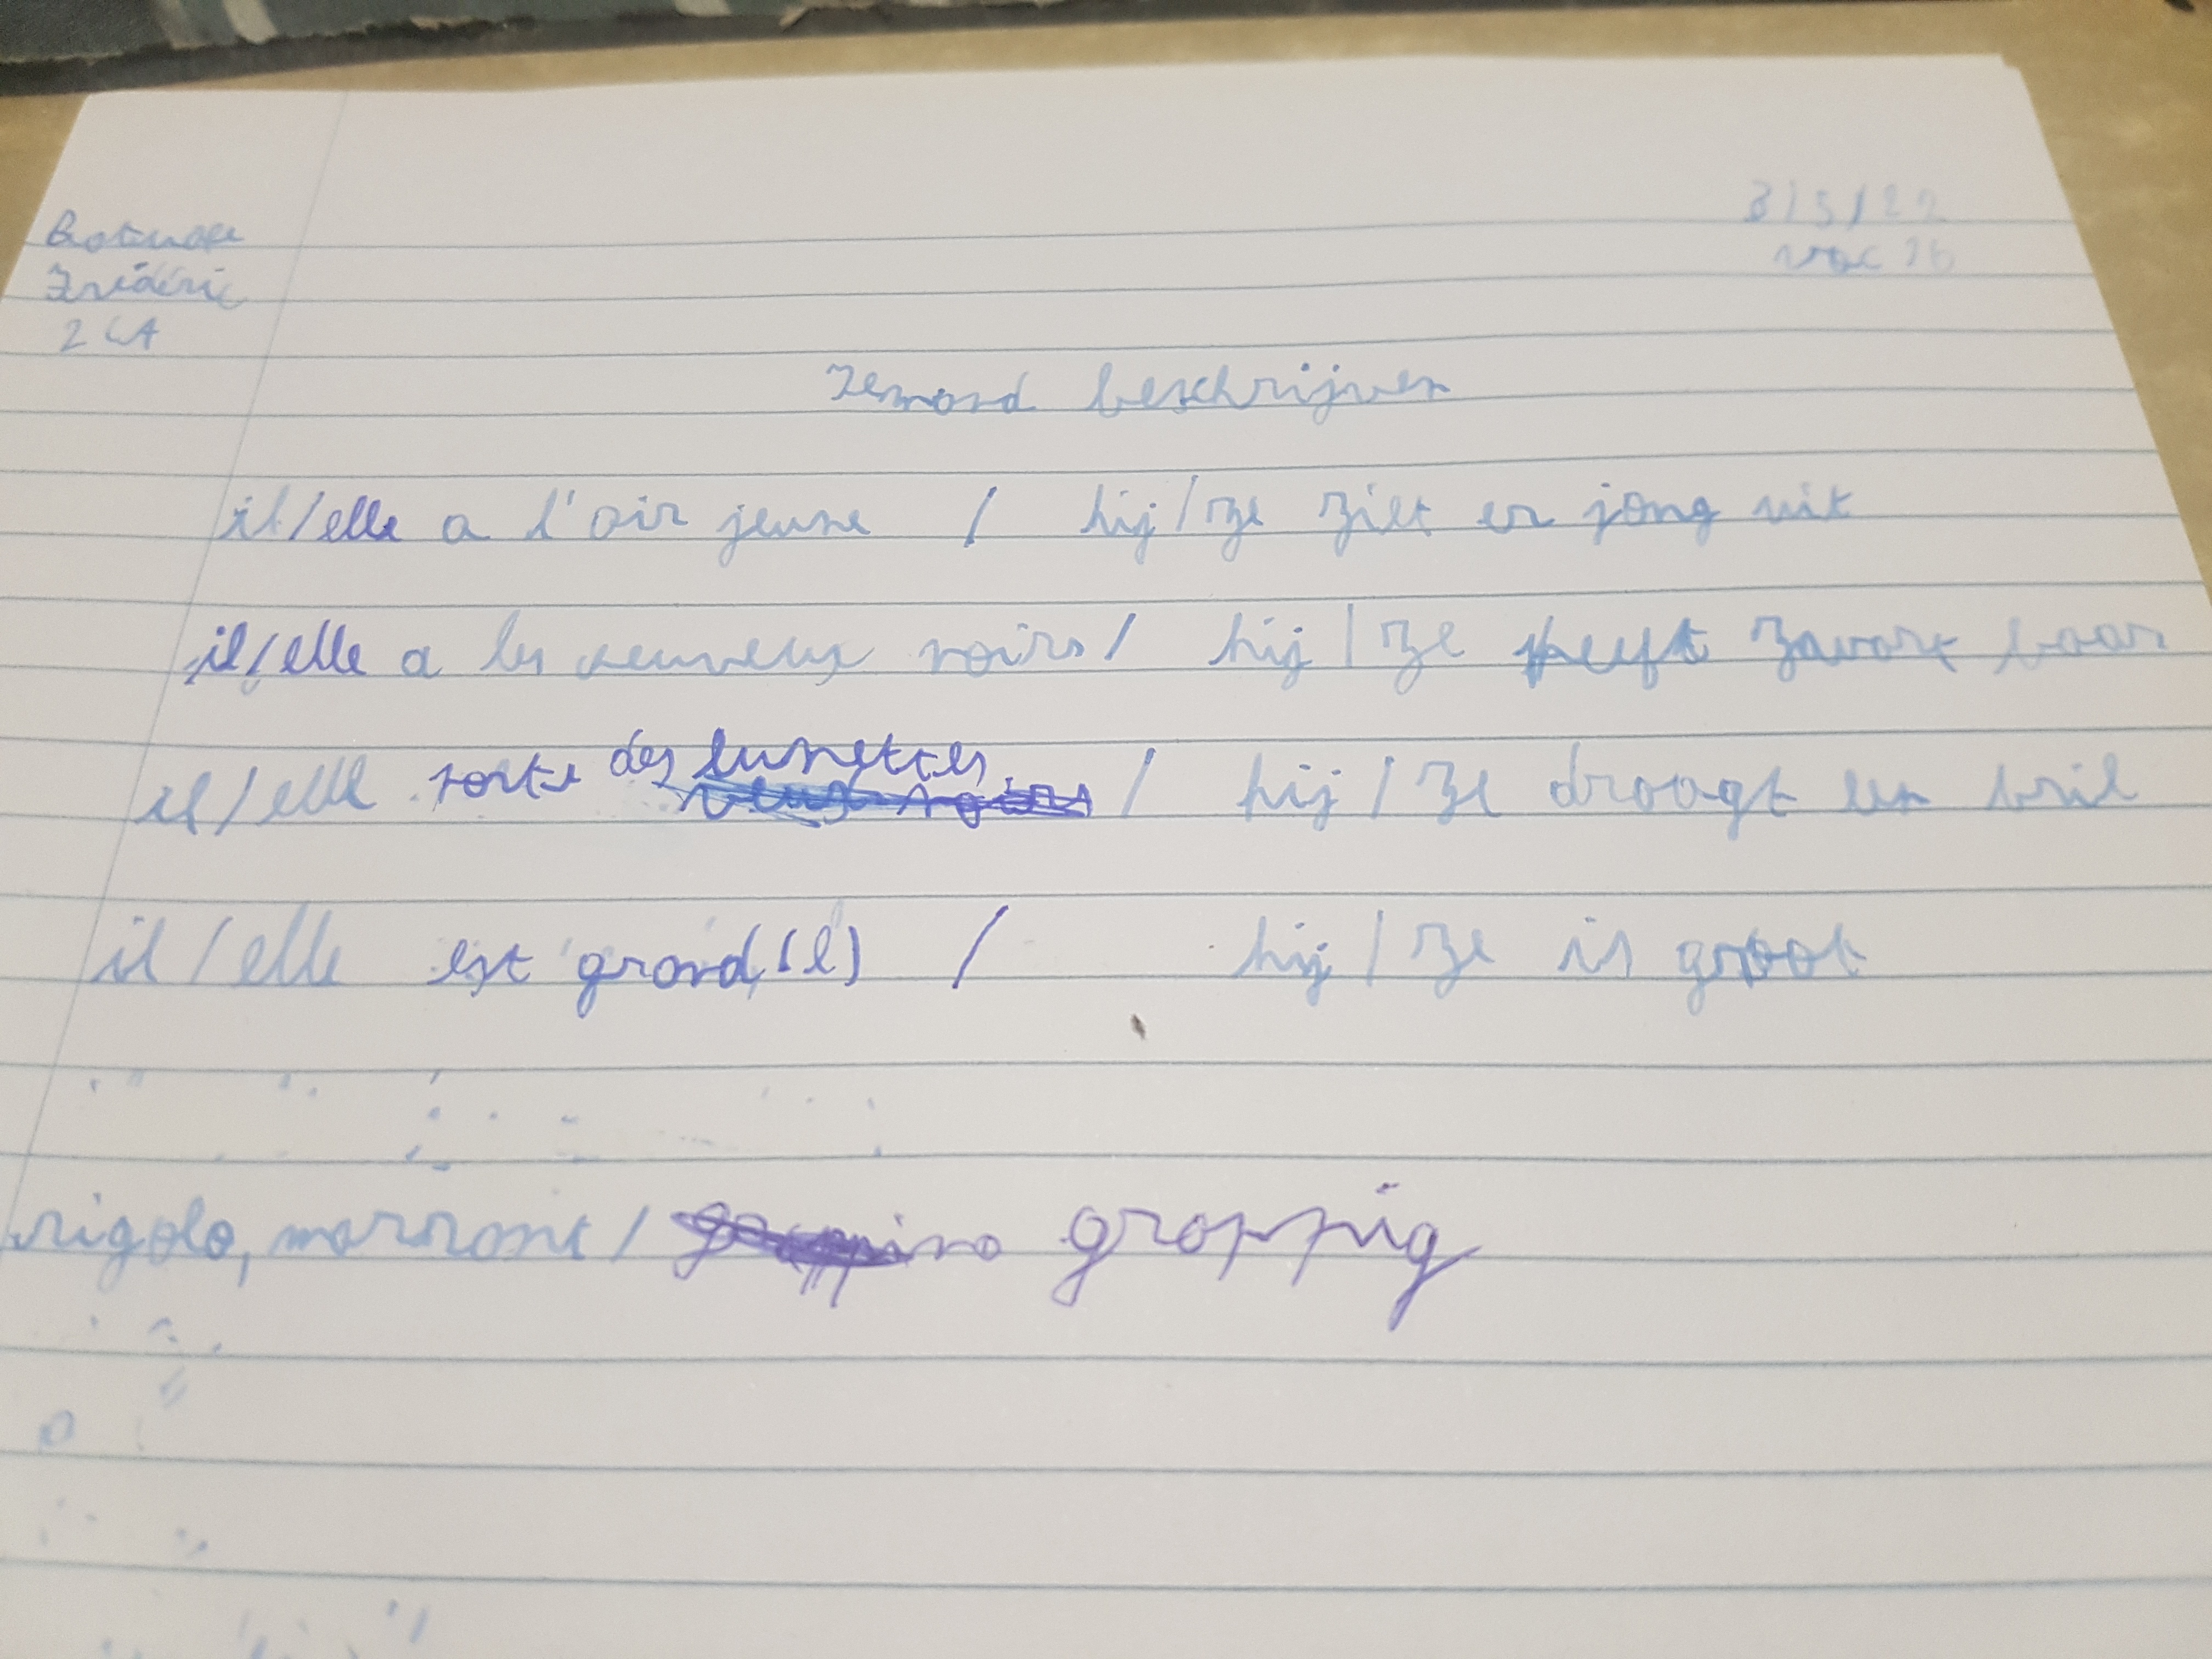 Frédéric
2 LA
3/5/22
voc 16
Iemand beschrijven
il/elle a l'air jeune / hij/ze ziet er jong uit
il/elle a les cheveux noirs / hij/ze heeft zwart haar
il/elle porte des lunettes / hij/ze draagt een bril
il/elle est grand(e) / hij/ze is groot
rigolo, marrant / grappig